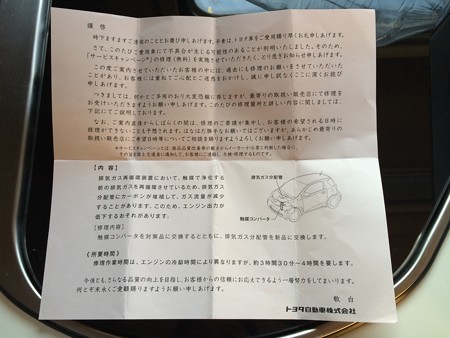 謹 啓
時下ますますご清栄のこととお慶び申しあげます。平素は、トヨタ車をご愛用賜り厚くお礼申しあげます。
さて、このたびご愛用車にて不具合が生じる可能性のあることが判明いたしました。そのため、
"サービスキャンペーン"の修理(無料)を実施させていただきたく、とり急ぎお知らせ申しあげます。
この度ご案内させていただいたお客様の中には、過去にも修理のお願いをさせていただいた
ことがあり、お客様には重ねてご心配とご迷惑をおかけし、誠に申し訳なくここに深くお詫び
申しあげます。
つきましては、何かとご多用のおり大変恐縮に存じますが、最寄りの取扱い販売店にて修理を
お受けいただきますようお願い申しあげます。このたびの修理箇所と詳しい内容に関しましては、
下記にてご説明しております。
なお、ご案内直後からしばらくの間は、修理のご要請が集中し、お客様の希望される日時に
修理ができないことも予想されます。はなはだ勝手なお願いではございますが、あらかじめ最寄りの
取扱い販売店にご希望日時等についてご相談を賜りますようよろしくお願い申しあげます。
*サービスキャンペーンとは、商品品質改善等の観点からメーカーが必要と判断した場合に、
その旨を国土交通省に通知して、お客様にご連絡し、点検・修理するものです。
【内 容】
排気ガス再循環装置において、触媒で浄化する
前の排気ガスを再循環させているため、排気ガス
分配管にカーボンが堆積して、ガス流量が減少
することがあります。このため、エンジン出力が
低下するおそれがあります。
排気ガス分配管
触媒コンバータ
【修理内容】
触媒コンバータを対策品に交換するとともに、排気ガス分配管を新品に交換します。
《所要時間》
修理作業時間は、エンジンの冷却時間により異なりますが、約3時間30分~4時間を要します。
今後とも、さらなる品質の向上を目指し、お客様からの信頼にお応えできるよう一層努力をしてまいります。
何とぞ末永くご愛顧賜りますようお願い申しあげます。
敬 白
トヨタ自動車株式会社